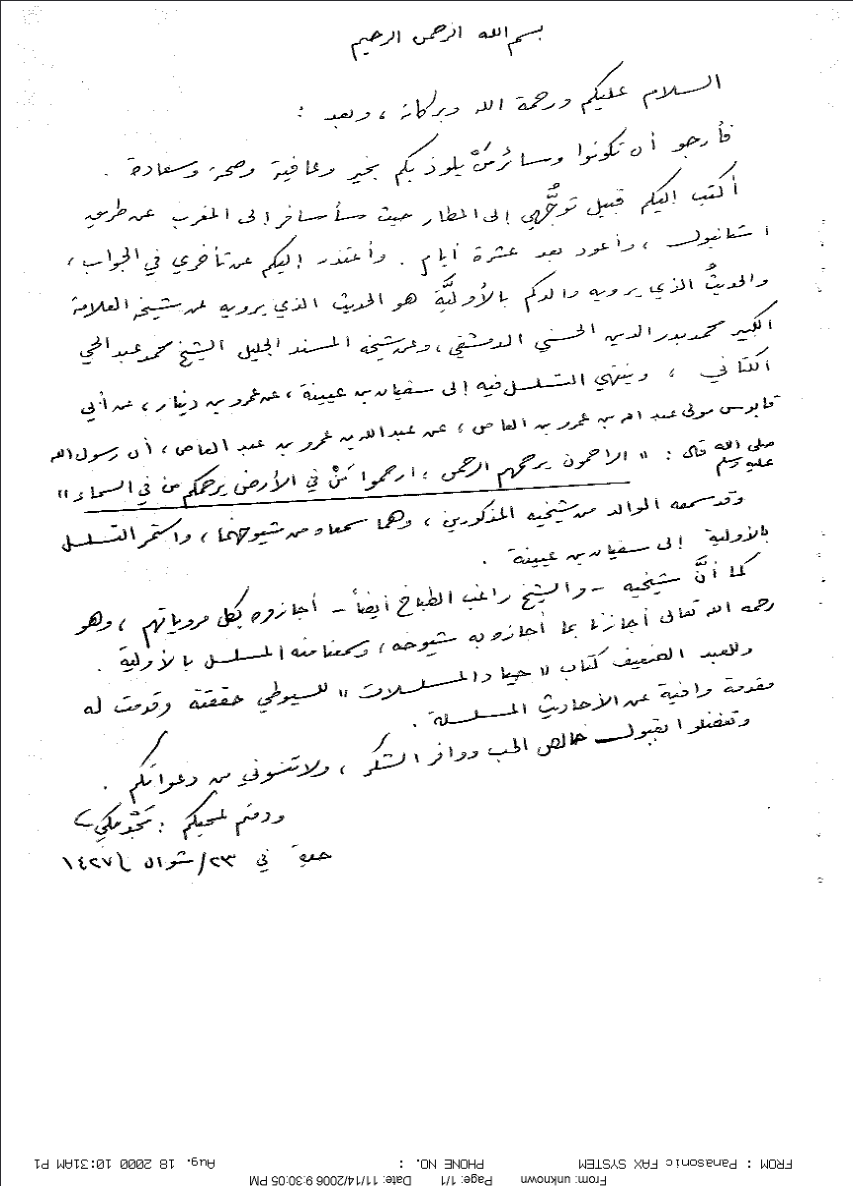 بسم الله الرحمن الرحيم
السلام عليكم ورحمة الله وبركاته ، وبعد :
فأرجو أن تكونوا وسائر مَنْ يلوذ بكم بخير وعافية وصحة وسعادة .
أكتب إليكم قبيل توجُّهي إلى المطار حيث سأسافر إلى المغرب عن طريق
استانبول ، وأعود بعد عشرة أيام . وأعتذر إليكم عن تأخري في الجواب ،
والحديثُ الذي يرويه والدكم بالأوليَّة هو الحديث الذي يرويه عن شيخه العلامة
الكبير محمد بدر الدين الحسني الدمشقي ، وعن شيخه المسند الجليل الشيخ محمد عبد الحي
الكتاني ، وينتهي التسلسل فيه إلى سفيان بن عيينة ، عن عمرو بن دينار ، عن أبي
قابوس مولى عبد الله بن عمرو بن العاص ، عن عبد الله بن عمرو بن العاص ، أن رسول الله
صلى الله عليه وسلم قال : " الراحمون يرحمهم الرحمن ، ارحموا مَنْ في الأرض يرحمكم من في السماء "
وقد سمعه الوالد من شيخيه المذكورين ، وهما سمعاه من شيوخهما ، واستمر التسلسل
بالأولية إلى سفيان بن عيينة .
كما أنَّ شيخيه - والشيخ راغب الطباخ أيضاً - أجازوه بكل مروياتهم ، وهو
رحمه الله تعالى أجازنا بما أجازه به شيوخه ، وسمعنا منه المسلسل بالأولية .
وللعبد الضعيف كتاب " جياد المسلسلات " للسيوطي حققته وقدمت له
مقدمة وافية عن الأحاديث المسلسلة .
وتفضلوا بقبول خالص الحب ووافر الشكر ، ولا تنسوني من دعواتكم .
ودمتم لمحبكم : مَجْد مكي
جدة في ٢٣/شوال/١٤٢٧
FROM : Panasonic FAX SYSTEM PHONE NO. : Aug. 18 2000 10:31AM P1
From: unknown Page: 1/1 Date: 11/14/2006 9:30:05 PM